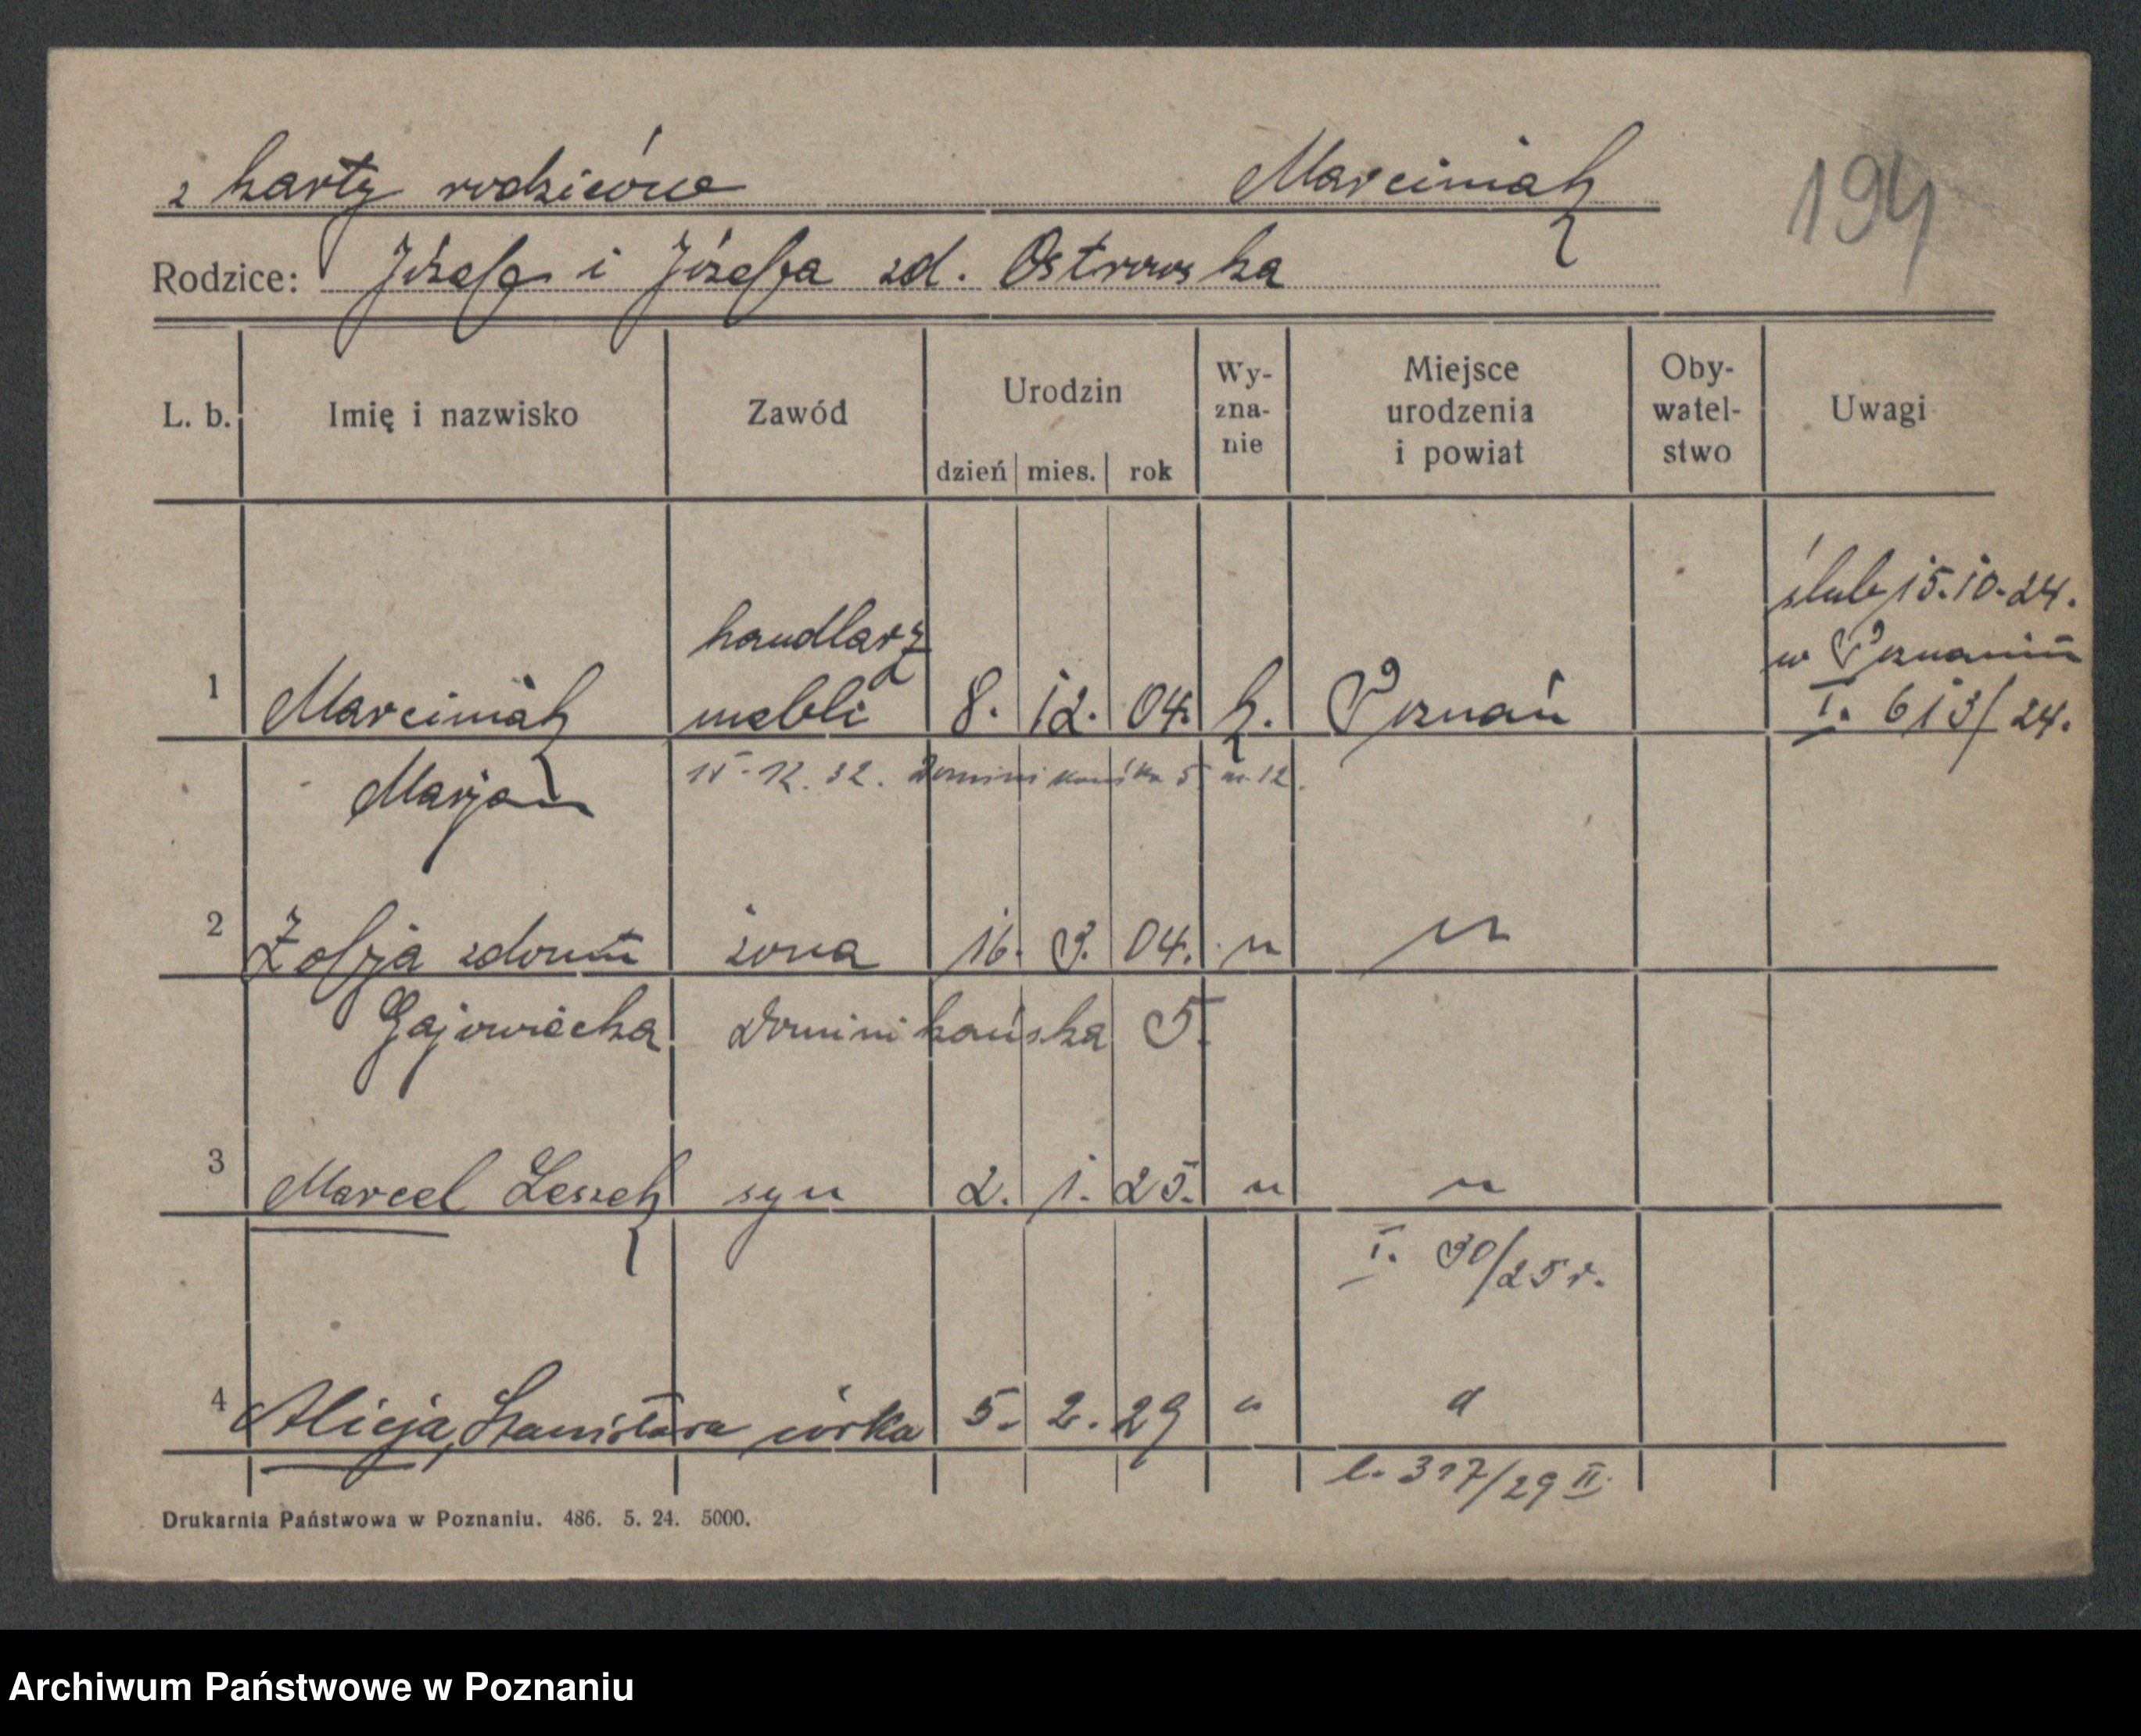 z karty rodziców Marciniak
194
Rodzice: Józef i Józefa zd. Ostrowska
L. b. Imię i nazwisko Zawód Urodzin dzień mies. rok Wy-zna-nie Miejsce urodzenia i powiat Oby-watel-stwo Uwagi
ślub 15.10.24.
handlarz w Poznaniu
1 Marciniak mebli 8. 12. 04. k. Poznań I. 613/24.
Marjan 15.12.32. Dominikańska 5 m. 12.
2 Zofja zdomu żona 16. 3. 04. " "
Gajowiecka Dominikańska 5.
3 Marcel Leszek syn 2. 1. 25. " "
I. 30/25 r.
4 Alicja, Stanisława córka 5. 2. 29 " "
l. 317/29 II.
Drukarnia Państwowa w Poznaniu. 486. 5. 24. 5000.
Archiwum Państwowe w Poznaniu